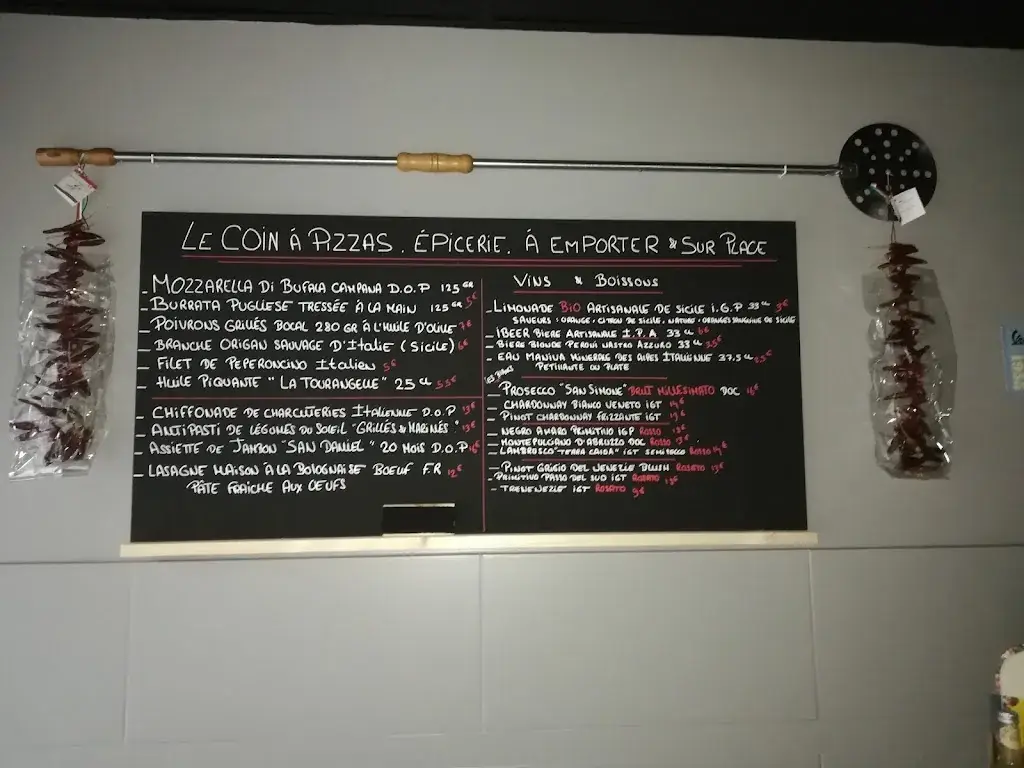 LE COIN À PIZZAS . ÉPICERIE . À EMPORTER & SUR PLACE
_ MOZZARELLA Di BUFALA CAMPANA D.O.P 125 GR
_ BURRATA PUGLIESE TRESSÉE À LA MAIN 125 GR 5€
_ POIVRONS GRILLÉS BOCAL 280 GR À L'HUILE D'OLIVE 7€
_ BRANCHE ORIGAN SAUVAGE D'ITALIE (SICILE) 6€
_ FILET DE PEPERONCINO ITALIEN 5€
_ HUILE PIQUANTE "LA TOURANGELLE" 25 CL 5.5€
_ CHIFFONADE DE CHARCUTERIES ITALIENNE D.O.P 13€
_ ANTIPASTI DE LÉGUMES DU SOLEIL "GRILLÉS & MARINÉS" 13€
_ ASSIETTE DE JAMBON "SAN DANIEL" 20 MOIS D.O.P
_ LASAGNE MAISON À LA BOLOGNAISE BOEUF F.R 12€
PÂTE FRAICHE AUX OEUFS
VINS & BOISSONS
_ LIMONADE BIO ARTISANALE DE SICILE I.G.P 33 CL 3€
SAVEURS : ORANGE . CITRON DE SICILE . . ORANGES SANGUINE DE SICILE
_ IBEER BIERE ARTISANALE I.P.A 33 CL 6€
_ BIERE BLONDE PERONI NASTRO AZZURO 33 CL
_ EAU MANIVA MINERALE DES ALPES ITALIENNE 37.5 CL
PETILLANTE OU PLATE
_ PROSECCO "SAN SIMONE" BRUT MILLESIMATO DOC
_ CHARDONNAY BIANCO VENETO IGT
_ PINOT CHARDONNAY FRIZZANTE IGT
_ NEGRO AMARO PRIMITIVO IGP ROSSO 13€
_ MONTEPULCIANO D'ABRUZZO DOC ROSSO
_ LAMBRUSCO IGT SEMISECCO ROSSO
_ PINOT GRIGIO DEL VENEZIE BLUSH ROSATO 13€
_ PRIMITIVO PASSO DEL SUD IGT ROSATO 13€
_ IGT ROSATO 9€